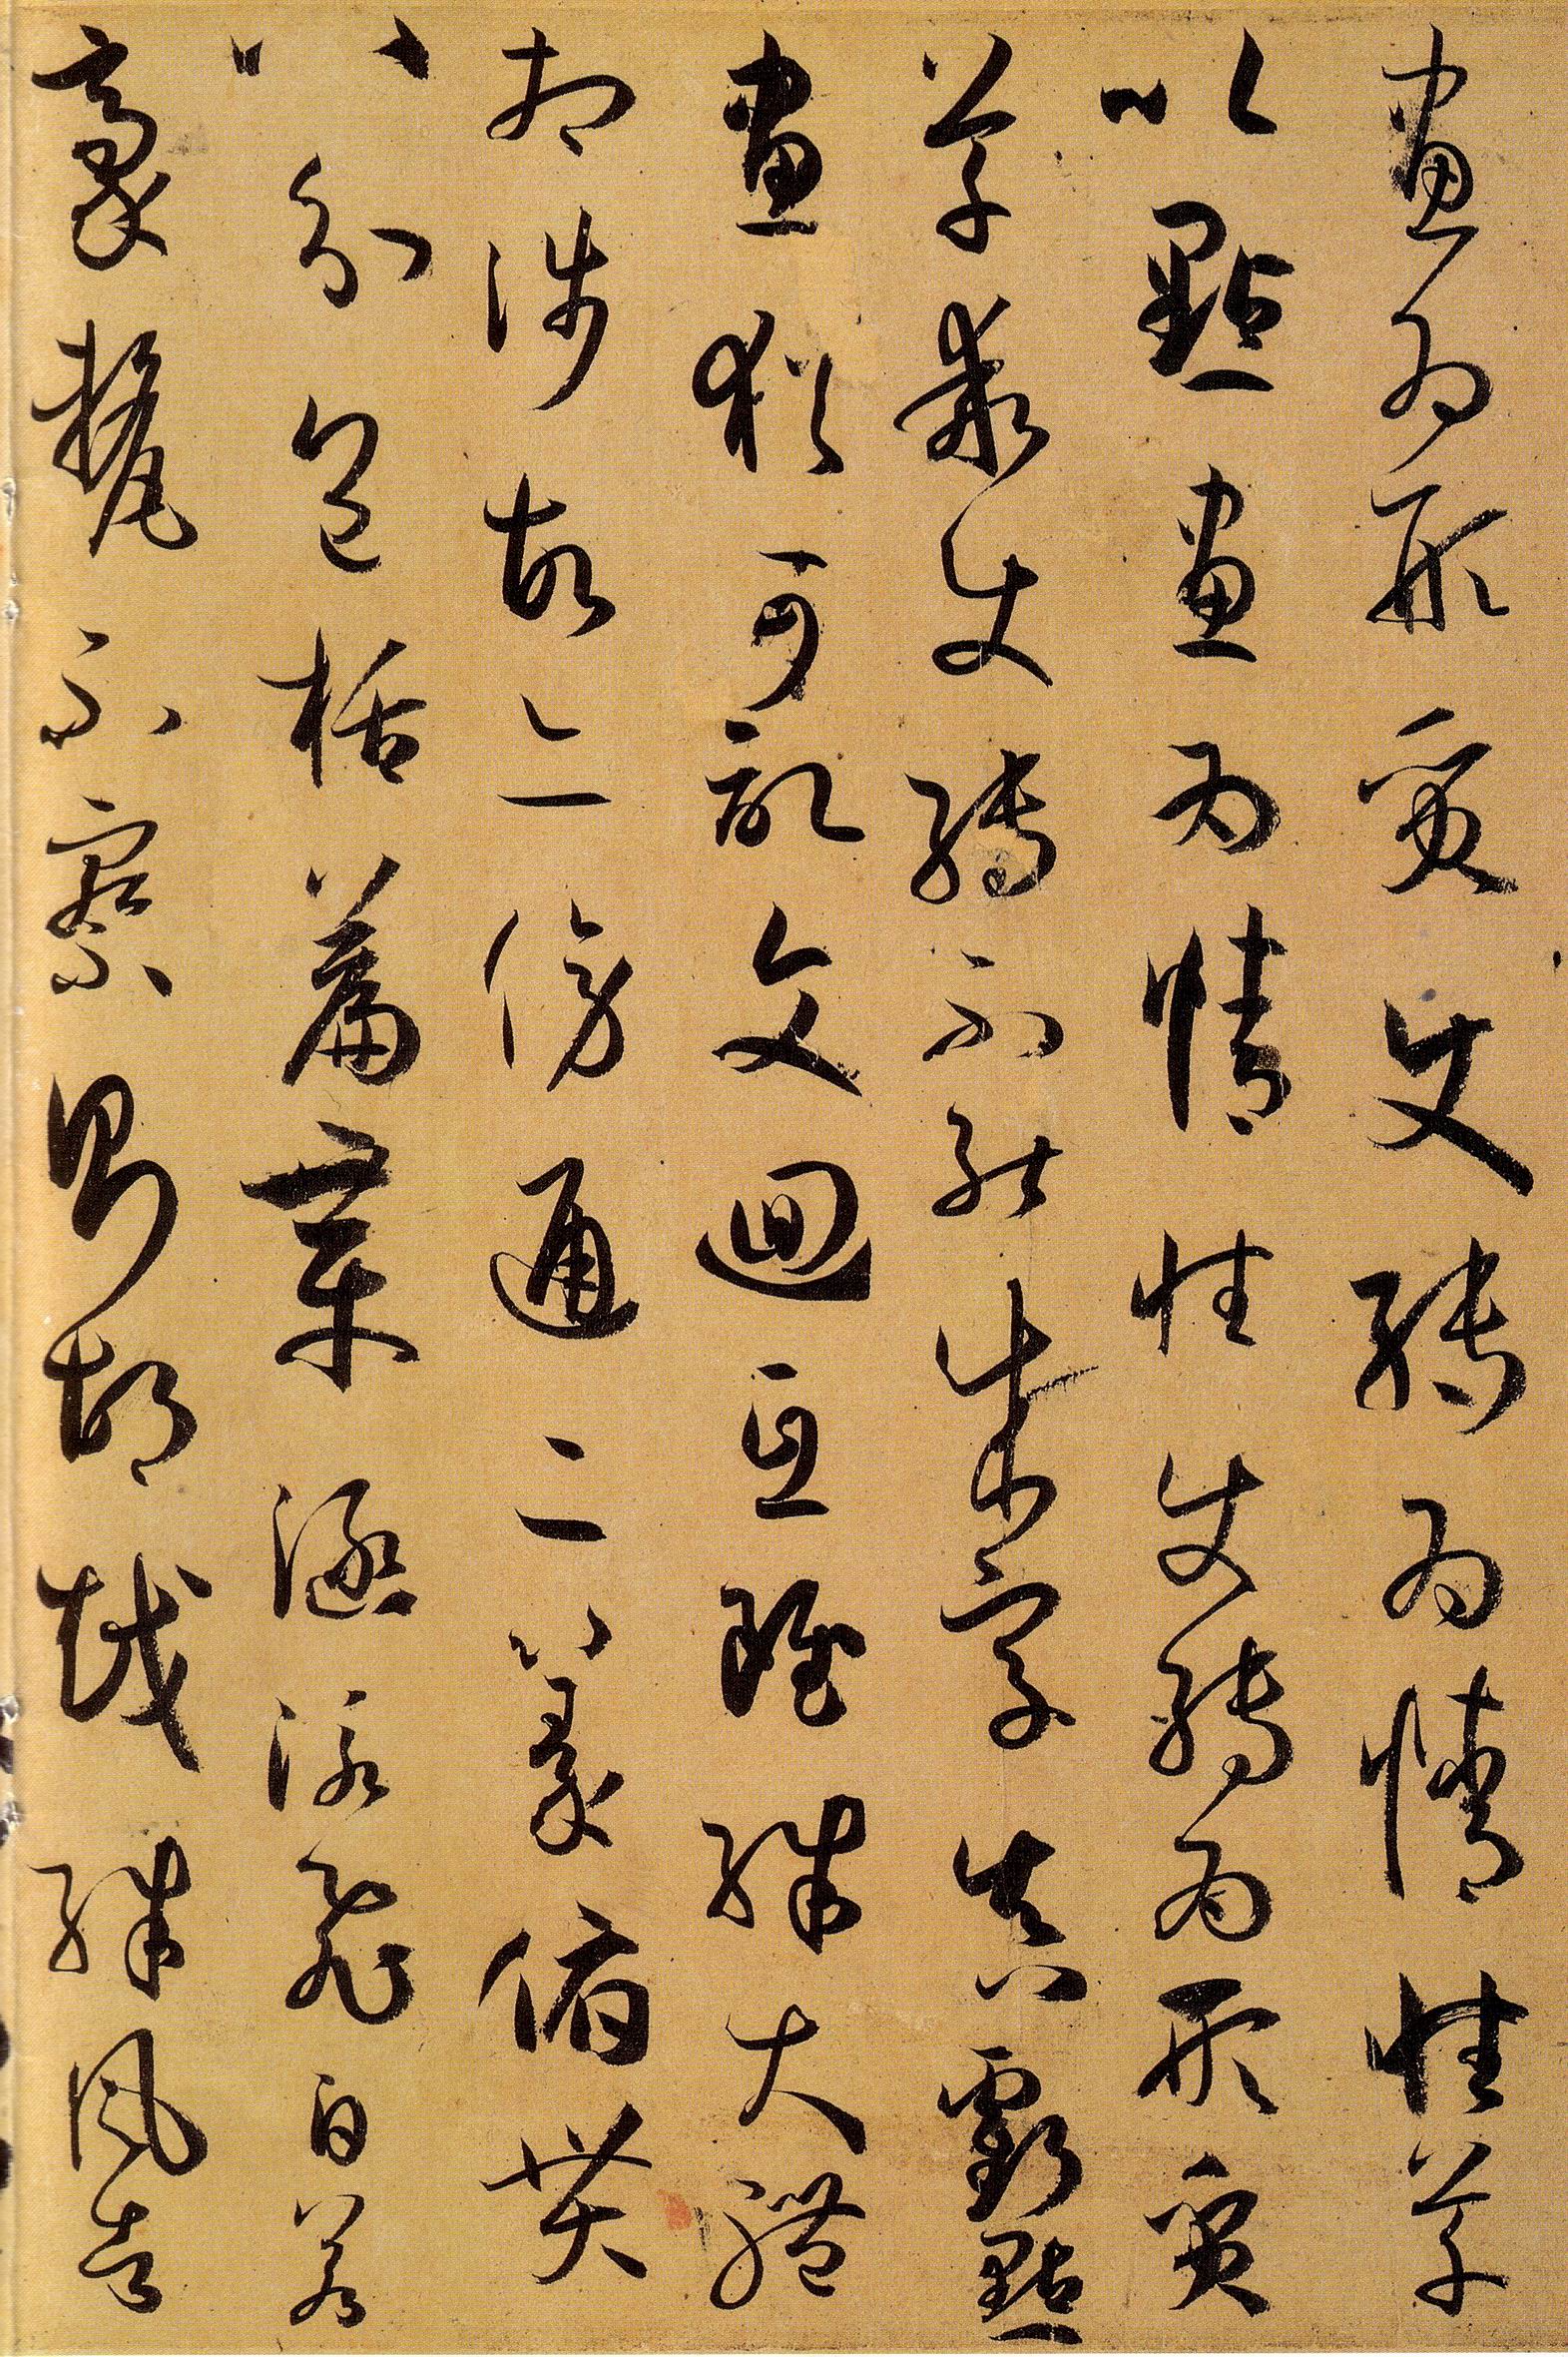 畫為形質使轉為情性草
以點畫為情性使轉為形質
草乖使轉不能成字真虧點
畫猶可記文迴互雖殊大體
相涉故亦傍通二篆俯貫
八分包括篇章涵泳飛白若
豪氂不察則胡越殊風者